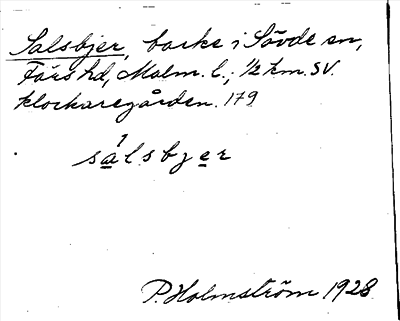 Salsbjer, backe i Sövde sn,
Färs hd, Malm. l.; ½ km. SV.
klockaregården. 179
sa̱1lsbje̱r
P. Holmström 1928